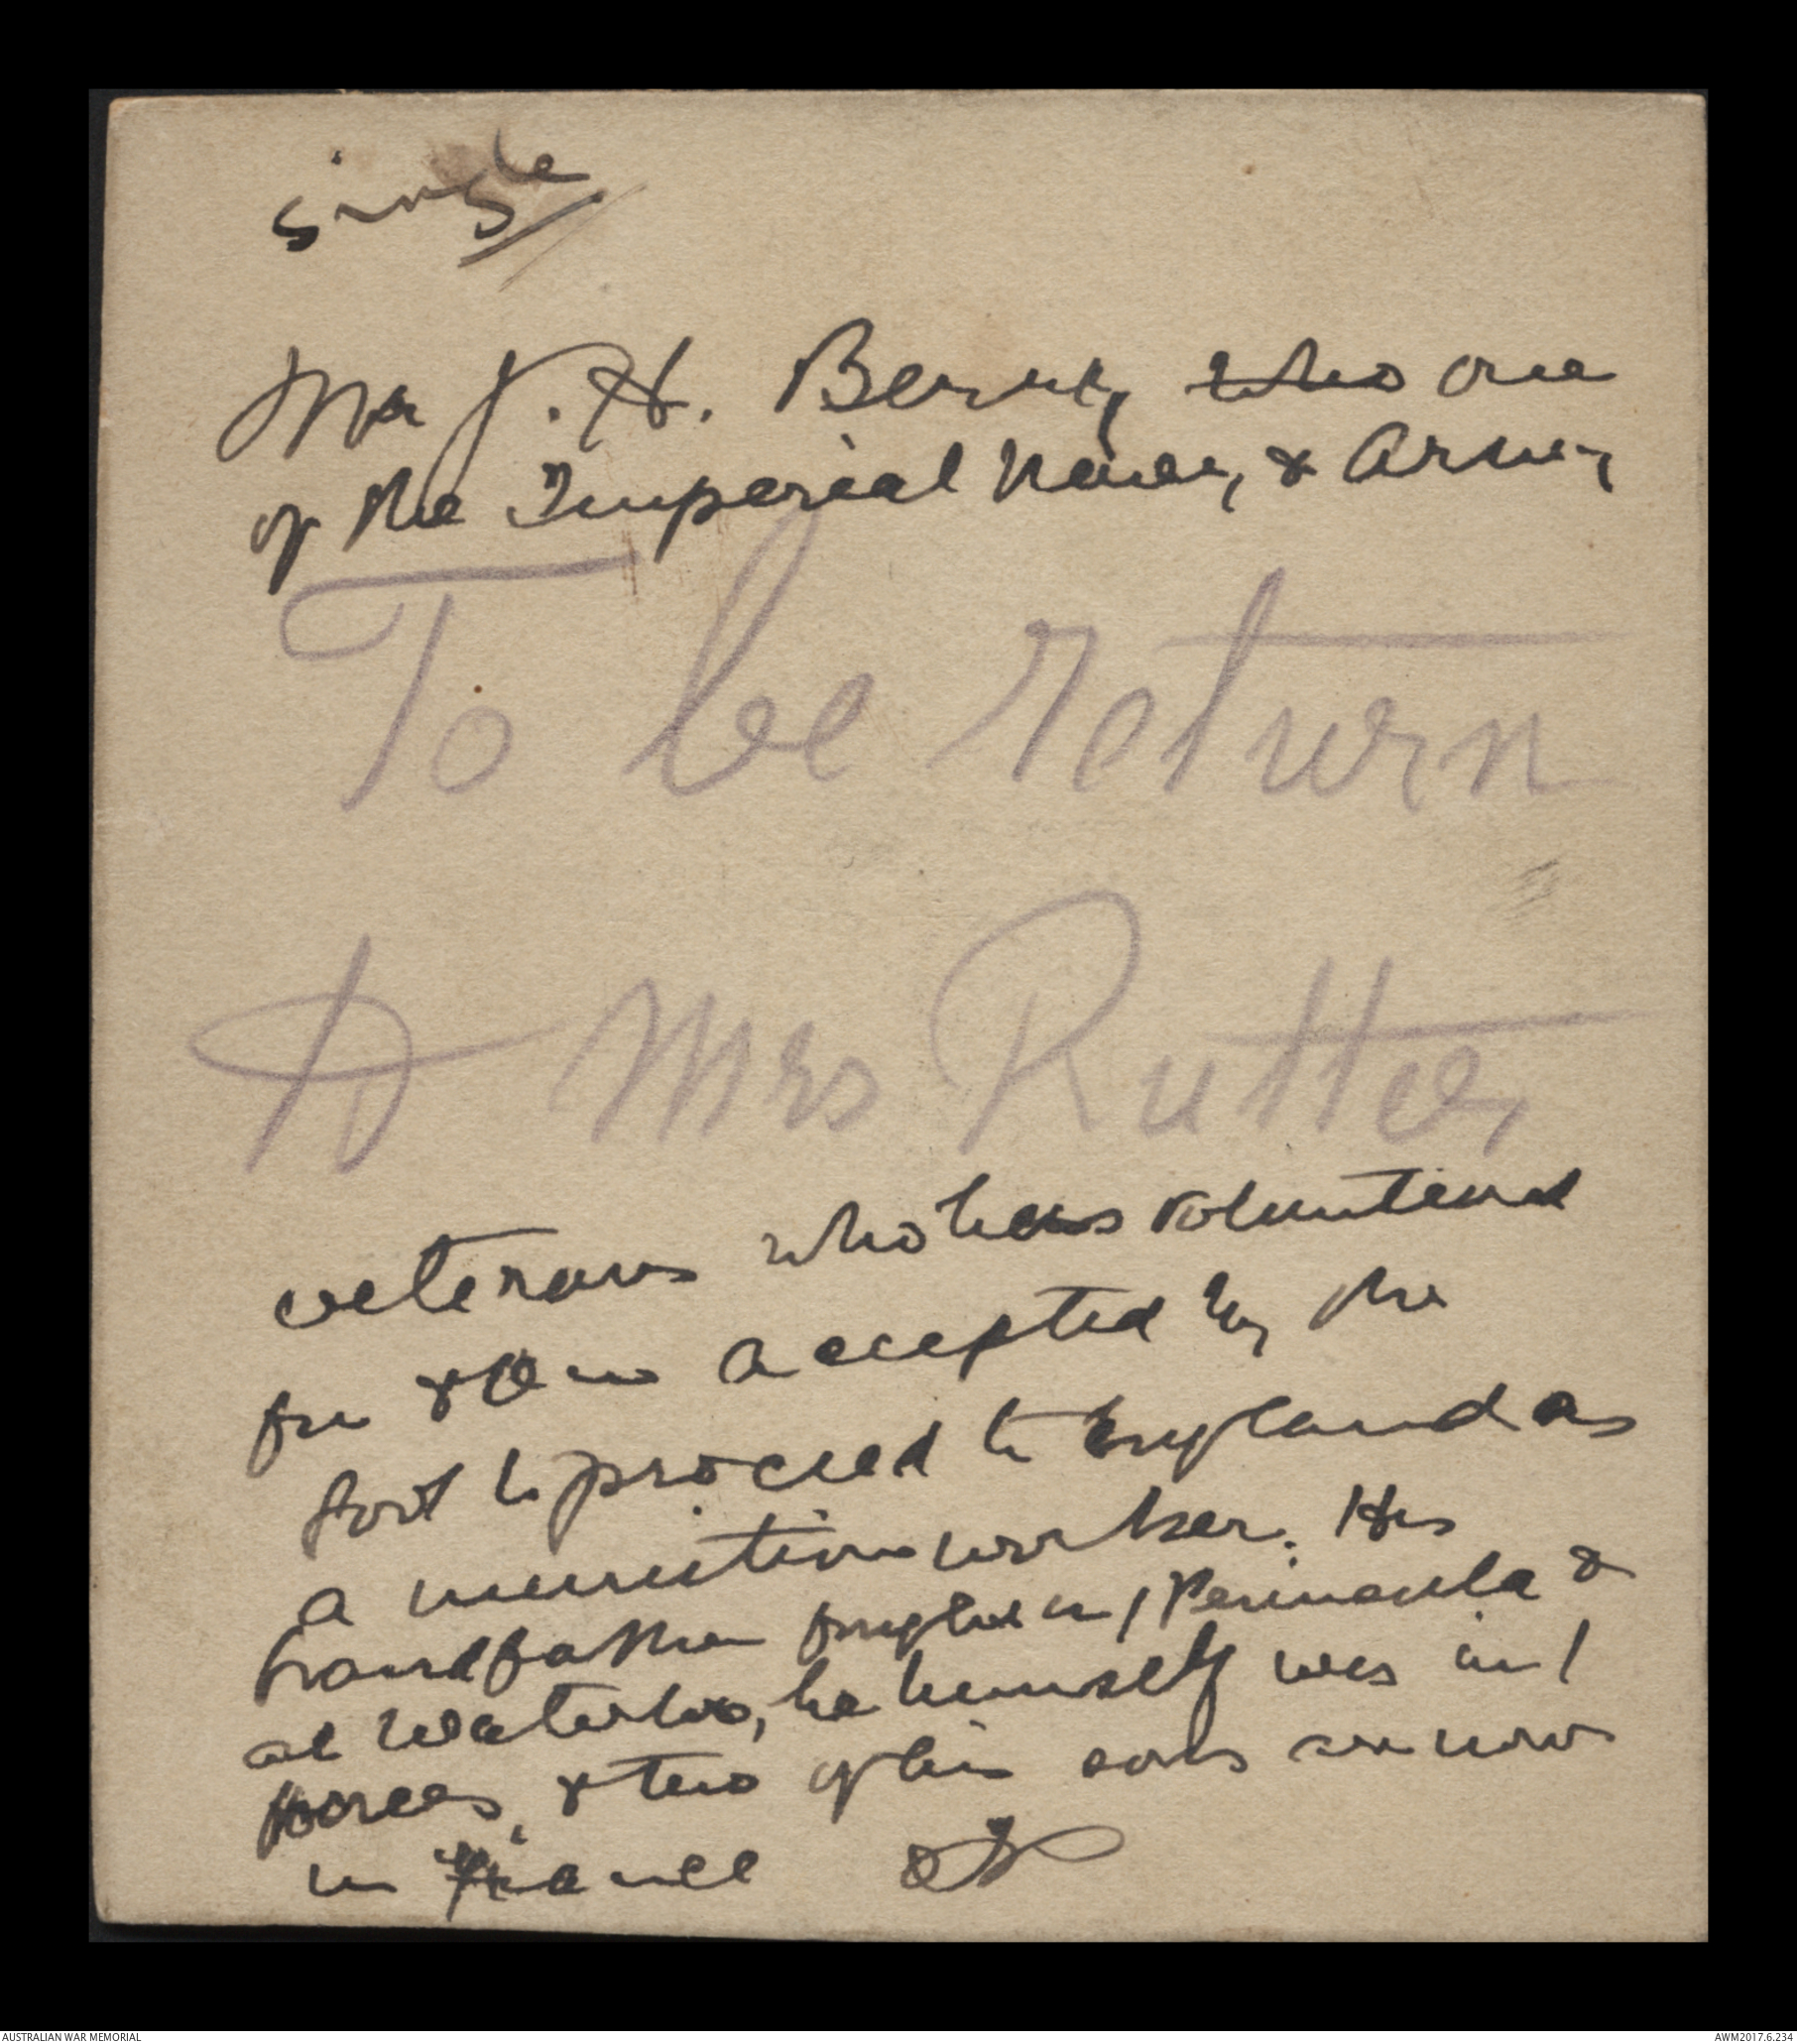 single
Mr J. H. Berry, who one
of the Imperial Naval, & Army
To be return
to Mrs Rutter
veterans who has volunteered
for & been accepted by the
Govt to proceed to England as
a munition worker. His
Grandfather fought in / Peninsula &
at Waterloo, he himself was in /
forces, & two of his sons are now
in France
AUSTRALIAN WAR MEMORIAL
AWM2017.6.234